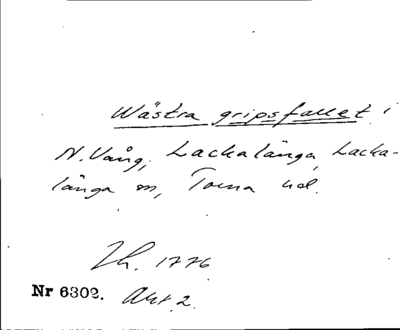 Wästra gripsfallet i
N. Vång, Lackalänga, Lacka-
länga sn, Torna hd.
1776
Nr 6302. Akt 2.